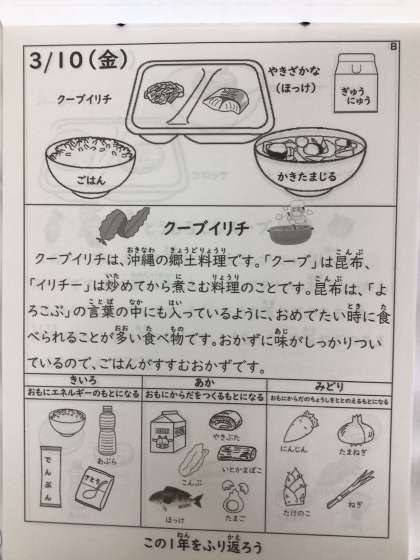 B
3/10(金)
クーブイリチ
やきざかな
(ほっけ)
ぎゅう
にゅう
ごはん
かきたまじる
クーブイリチ
クーブイリチは、沖縄の郷土料理です。「クーブ」は昆布、
「イリチー」は炒めてから煮こむ料理のことです。昆布は、「よ
ろこぶ」の言葉の中にも入っているように、おめでたい時に食
べられることが多い食べ物です。おかずに味がしっかりつい
ているので、ごはんがすすむおかずです。
きいろ
おもにエネルギーのもとになる
あか
おもにからだをつくるもとになる
みどり
おもにからだのちょうしをととのえるもとになる
でんぷん
あぶら
さとう
やきぶた
いとかまぼこ
こんぶ
ほっけ
たまご
にんじん
たまねぎ
たけのこ
ねぎ
この1年をふり返ろう